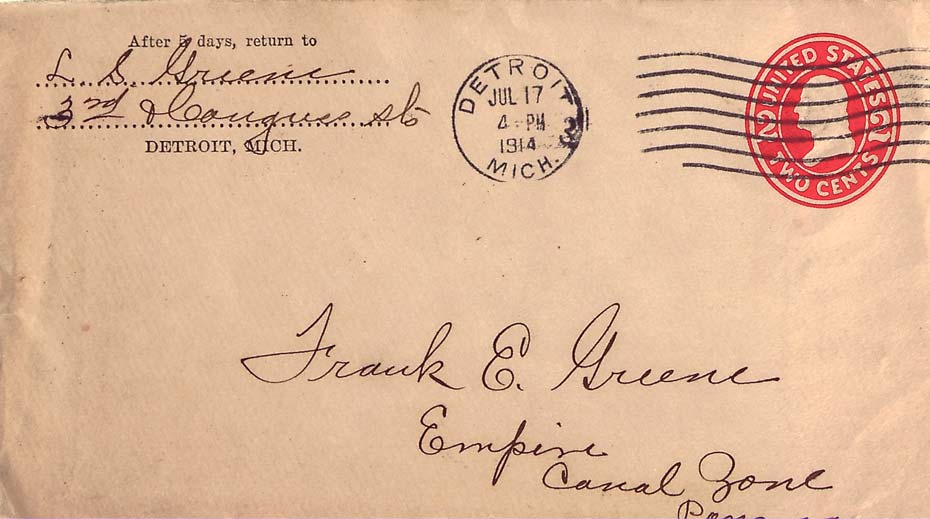 After 5 days, return to
L. S. Greene
3rd & Congress sts
DETROIT, MICH.
DETROIT
JUL 17
4 PM
1914
MICH.
UNITED STATES
2 2
TWO CENTS
Frank E. Greene
Empire
Canal Zone